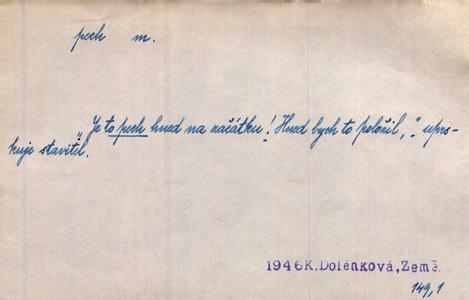 pech m.
„Je to pech hned na začátku! Hned bych to položil,“ uprs-
kuje stavitel.
1946K.Dolénková,Země.
149,1